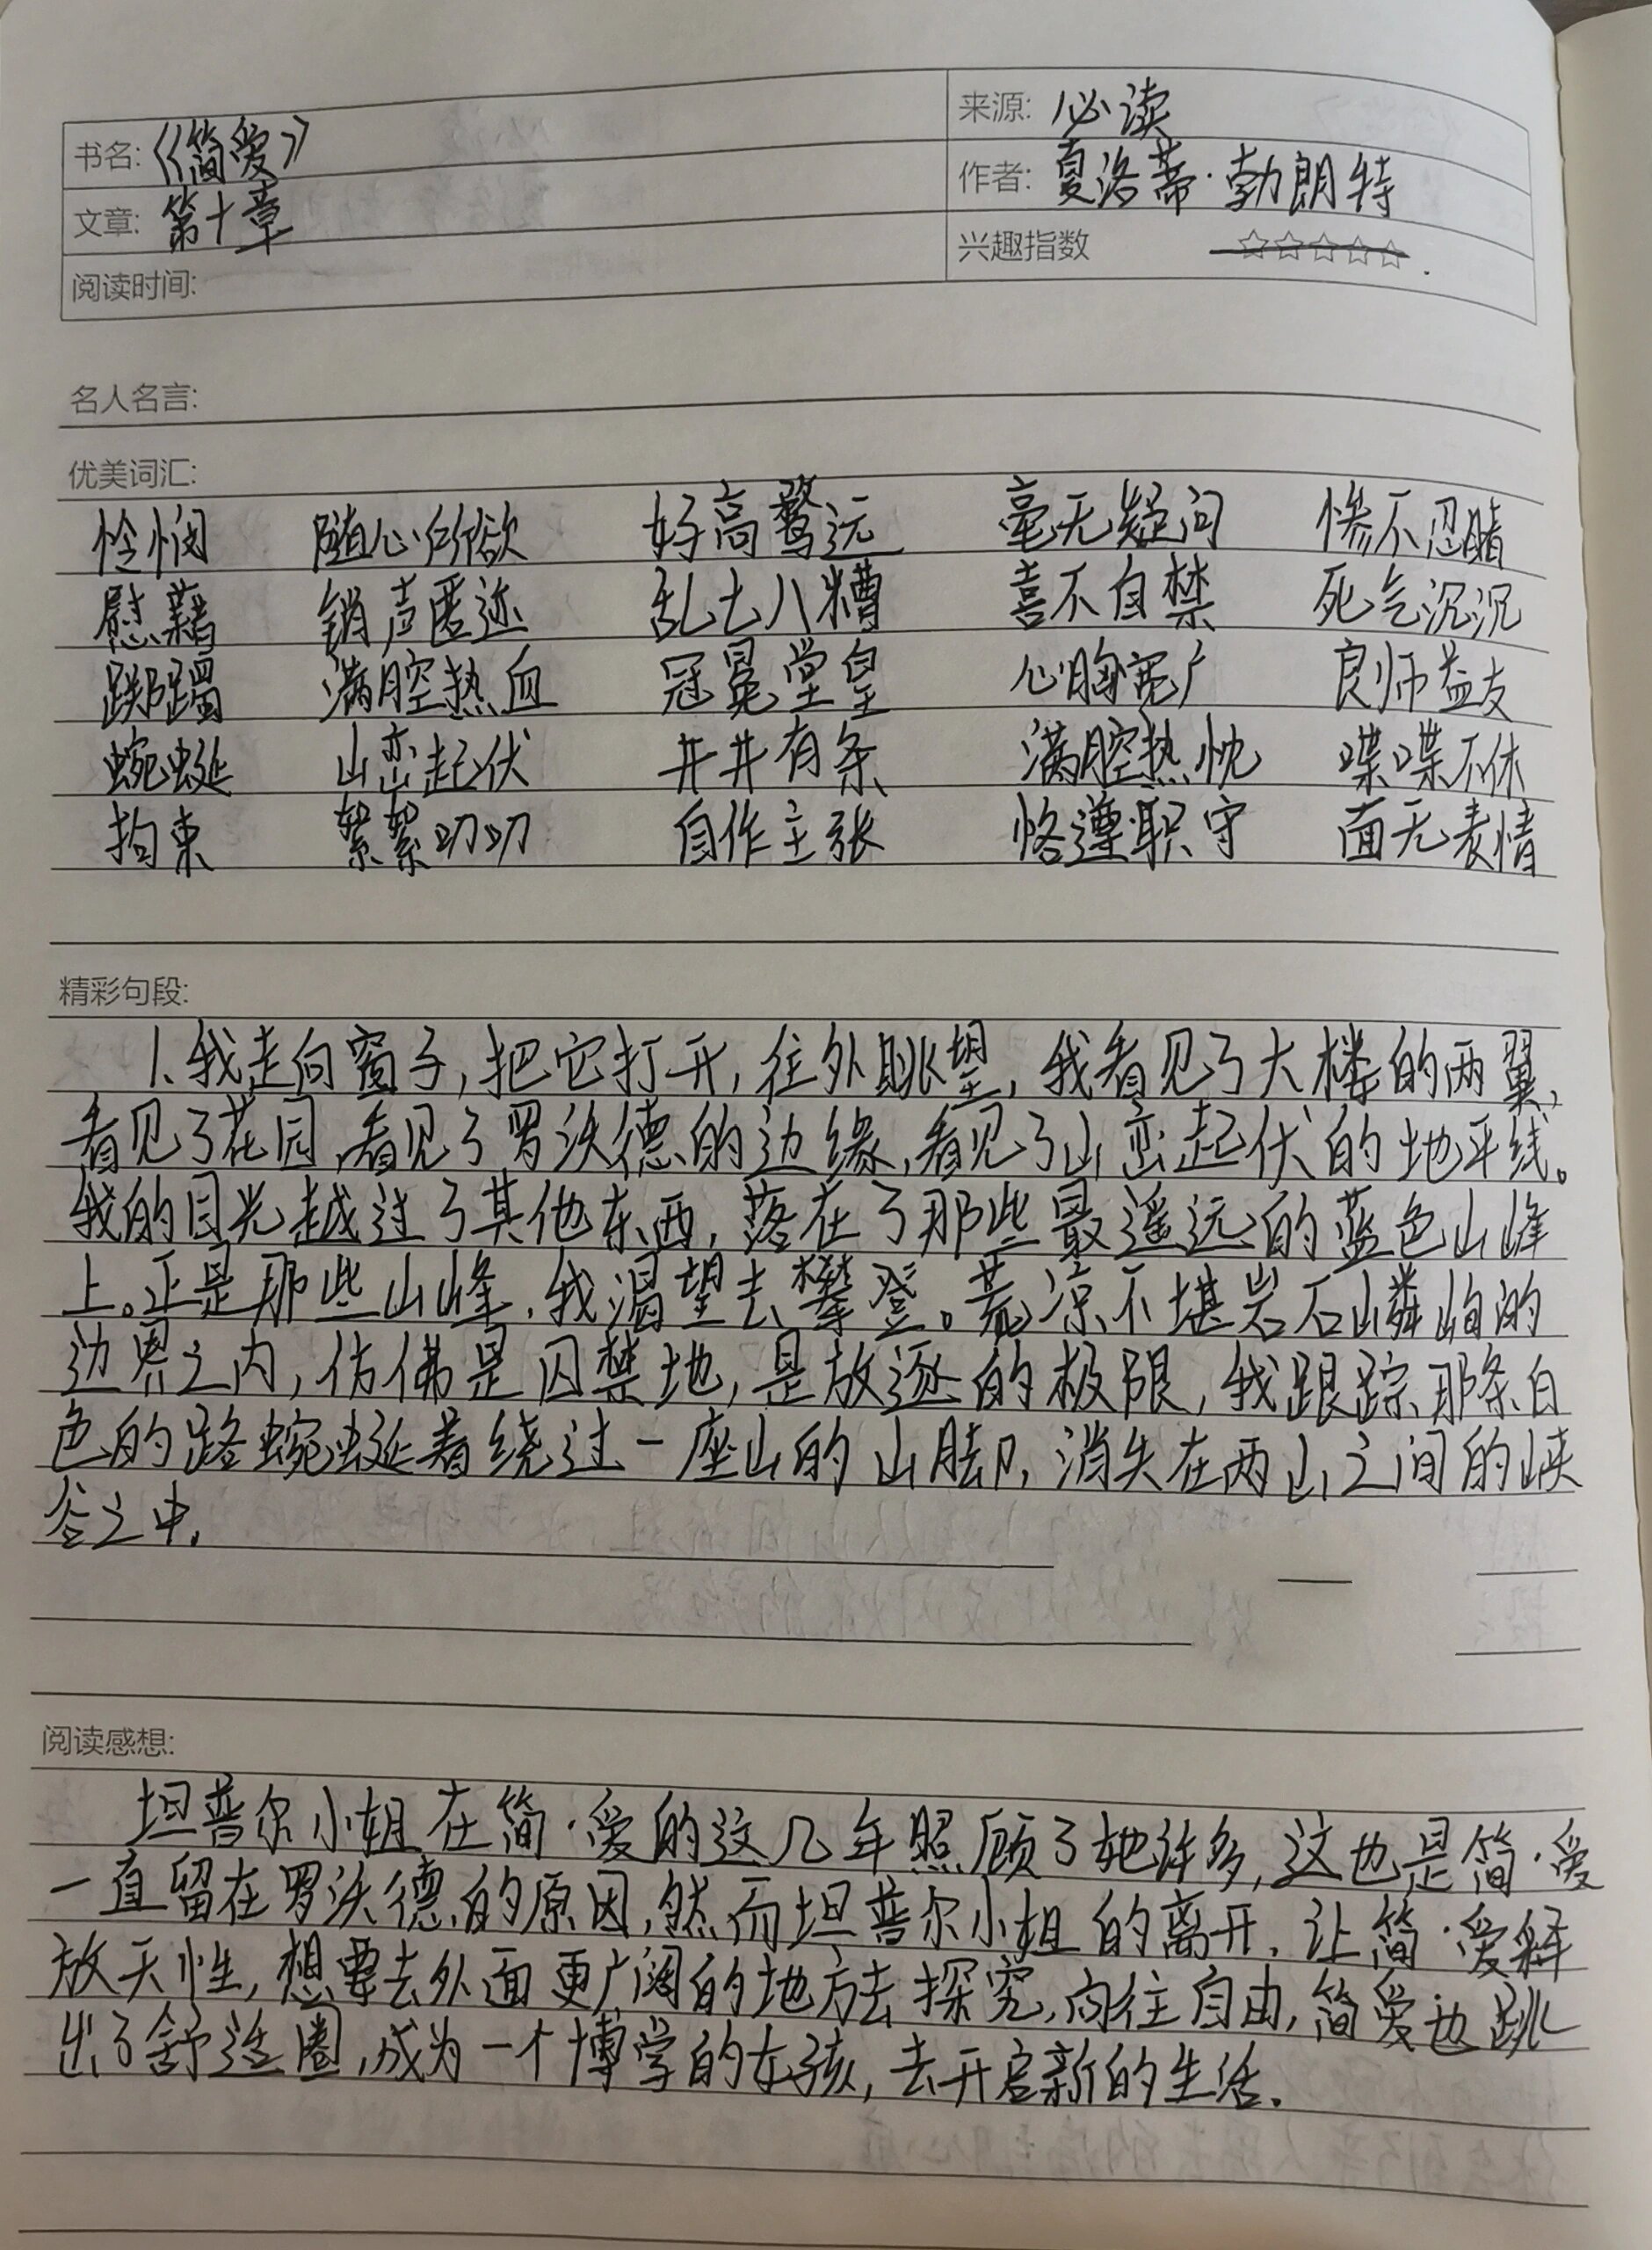 来源: 必读
书名:《简爱》
作者: 夏洛蒂·勃朗特
文章: 第十章
兴趣指数 ☆☆☆☆☆
阅读时间:
名人名言:
优美词汇:
怜悯 随心所欲 好高骛远 毫无疑问 惨不忍睹
慰藉 销声匿迹 乱七八糟 喜不自禁 死气沉沉
踯躅 满腔热血 冠冕堂皇 心胸宽广 良师益友
蜿蜒 山峦起伏 井井有条 满腔热忱 喋喋不休
拘束 絮絮叨叨 自作主张 恪遵职守 面无表情
精彩句段:
1、我走向窗子,把它打开,往外眺望,我看见了大楼的两翼,
看见了花园,看见了罗沃德的边缘,看见了山峦起伏的地平线。
我的目光越过了其他东西,落在了那些最遥远的蓝色山峰
上。正是那些山峰,我渴望去攀登。荒凉不堪岩石嶙峋的
边界之内,仿佛是囚禁地,是放逐的极限,我跟踪那条白
色的路蜿蜒着绕过一座山的山脚,消失在两山之间的峡
谷之中。
阅读感想:
坦普尔小姐在简·爱的这几年照顾了她许多,这也是简·爱
一直留在罗沃德的原因,然而坦普尔小姐的离开,让简·爱释
放天性,想要去外面更广阔的地方去探究,向往自由,简爱也跳
出了舒适圈,成为一个博学的女孩,去开启新的生活。